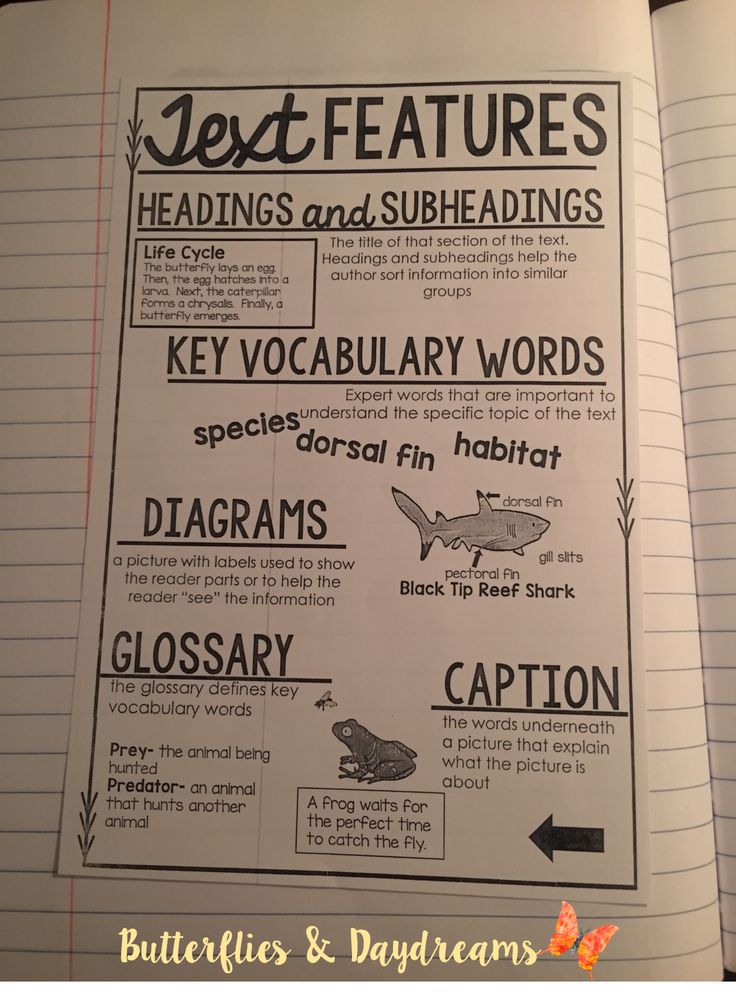 Text FEATURES
HEADINGS and SUBHEADINGS
Life Cycle
The butterfly lays an egg.
Then, the egg hatches into a
larva. Next, the caterpillar
forms a chrysalis. Finally, a
butterfly emerges.
The title of that section of the text.
Headings and subheadings help the
author sort information into similar
groups
KEY VOCABULARY WORDS
Expert words that are important to
understand the specific topic of the text
species
dorsal fin
habitat
DIAGRAMS
a picture with labels used to show
the reader parts or to help the
reader “see” the information
dorsal fin
gill slits
pectoral fin
Black Tip Reef Shark
GLOSSARY
the glossary defines key
vocabulary words
Prey- the animal being
hunted
Predator- an animal
that hunts another
animal
CAPTION
the words underneath
a picture that explain
what the picture is
about
A frog waits for
the perfect time
to catch the fly.
Butterflies & Daydreams